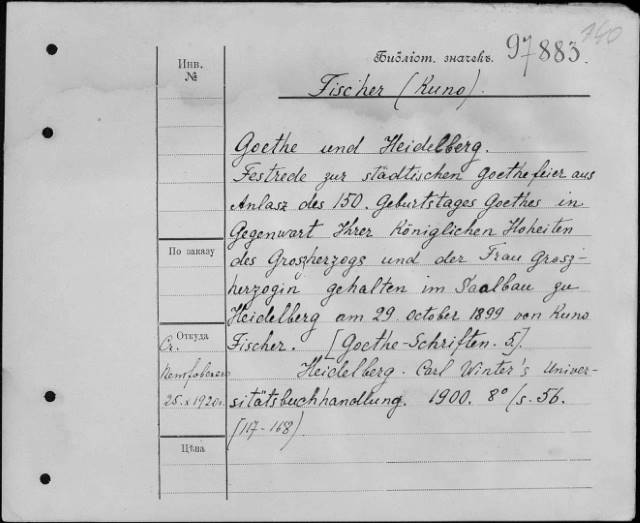 740
Библіот. значекъ. 97883.
Fischer (Kuno).
Инв.
№
Goethe und Heidelberg.
Festrede zur städtischen Goethefeier aus
Anlasz des 150. Geburtstages Goethes in
Gegenwart Ihrer Königlichen Hoheiten
des Groszherzogs und der Frau Grosz-
herzogin gehalten im Saalbau zu
Heidelberg am 29. October 1899 von Kuno
Fischer. [Goethe-Schriften. 5].
Heidelberg. Carl Winter's Univer-
sitätsbuchhandlung. 1900. 8° (s. 56.
[117-168)
По заказу
Откуда
Ст.
25.X 1920г.
Цѣна